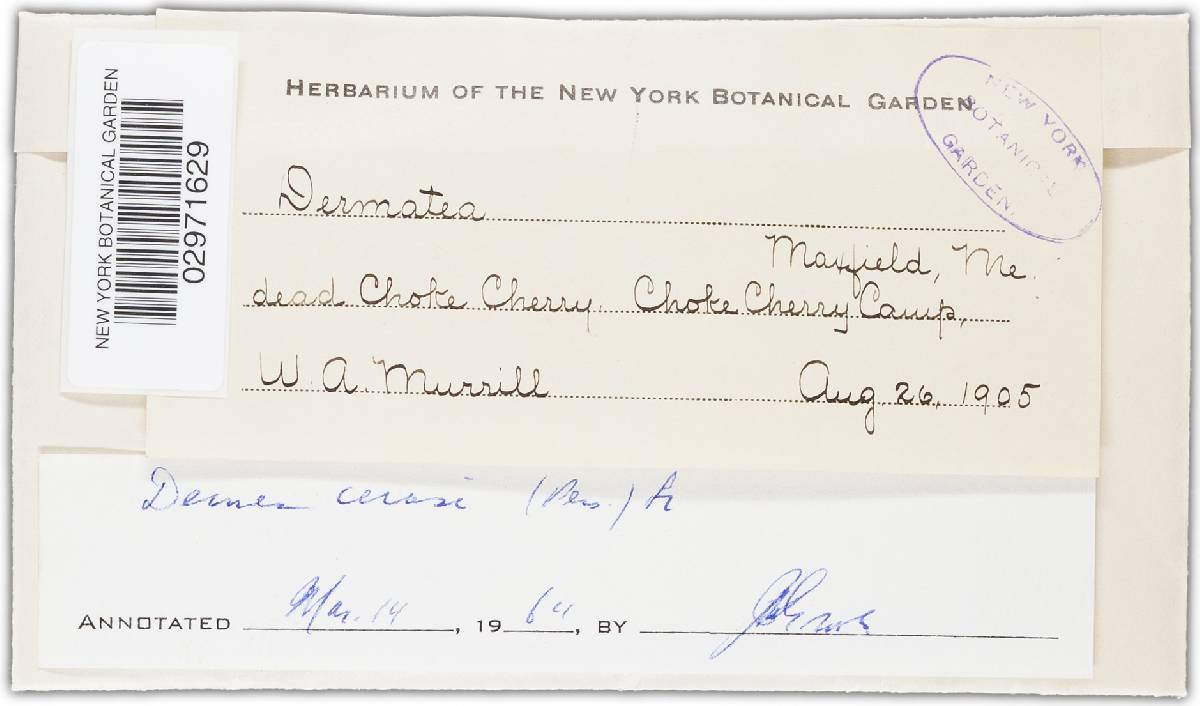 NEW YORK BOTANICAL GARDEN
02971629
HERBARIUM OF THE NEW YORK BOTANICAL GARDEN
NEW YORK
BOTANICAL
GARDEN.
Dermatea
Maxfield, Me.
dead Choke Cherry. Choke Cherry Camp,
W. A. Murrill Aug 26, 1905
Dermea cerasi (Pers.) Fr
ANNOTATED Mar. 14, 1964, BY